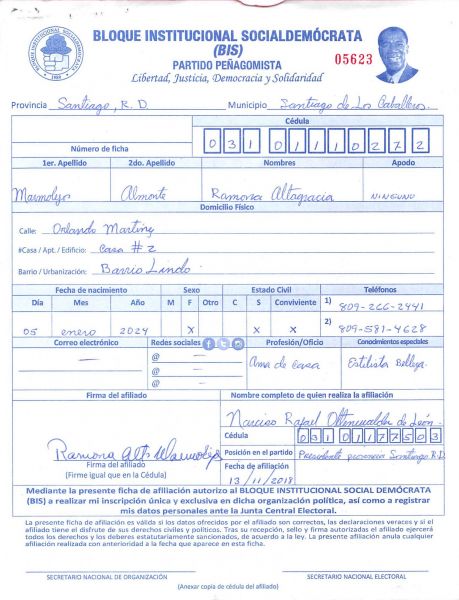 BLOQUE INSTITUCIONAL SOCIALDEMÓCRATA
(BIS)
PARTIDO PEÑAGOMISTA
05623
Libertad, Justicia, Democracia y Solidaridad
Provincia Santiago, R.D. Municipio Santiago de Los Caballeros.
Cédula
Número de ficha 031 0111027 2
1er. Apellido 2do. Apellido Nombres Apodo
Marmolejos Almonte Ramona Altagracia NINGUNO
Domicilio Físico
Calle: Orlando Martinez
#Casa / Apt. / Edificio: Casa # 2
Barrio / Urbanización: Barrio Lindo
Fecha de nacimiento Sexo Estado Civil Teléfonos
Día Mes Año M F Otro C S Conviviente 1) 809-266-2441
05 enero 2024 X X X 2) 809-581-4628
Correo electrónico Redes sociales Profesión/Oficio Conocimientos especiales
— @ — Ama de casa Estilista Belleza.
@ —
@ —
Firma del afiliado Nombre completo de quien realiza la afiliación
Narciso Rafael de León
Cédula
03101177503
Ramona Alt. Marmolejos
Posición en el partido Presidente provincia Santiago R.D.
Firma del afiliado
(Firme igual que en la Cédula)
Fecha de afiliación
13/11/2018
Mediante la presente ficha de afiliación autorizo al BLOQUE INSTITUCIONAL SOCIAL DEMÓCRATA
(BIS) a realizar mi inscripción única y exclusiva en dicha organización política, así como a registrar
mis datos personales ante la Junta Central Electoral.
La presente ficha de afiliación es válida si los datos ofrecidos por el afiliado son correctos, las declaraciones veraces y si el
afiliado tiene el disfrute de sus derechos civiles y políticos. Tras su recepción, sello y firma autorizadas el afiliado ejercerá
todos los derechos y los deberes estatutariamente sancionados, de acuerdo a la ley. La presente afiliación anula cualquier
afiliación realizada con anterioridad a la fecha que aparece en esta ficha.
SECRETARIO NACIONAL DE ORGANIZACIÓN SECRETARIO NACIONAL ELECTORAL
(Anexar copia de cédula del afiliado)